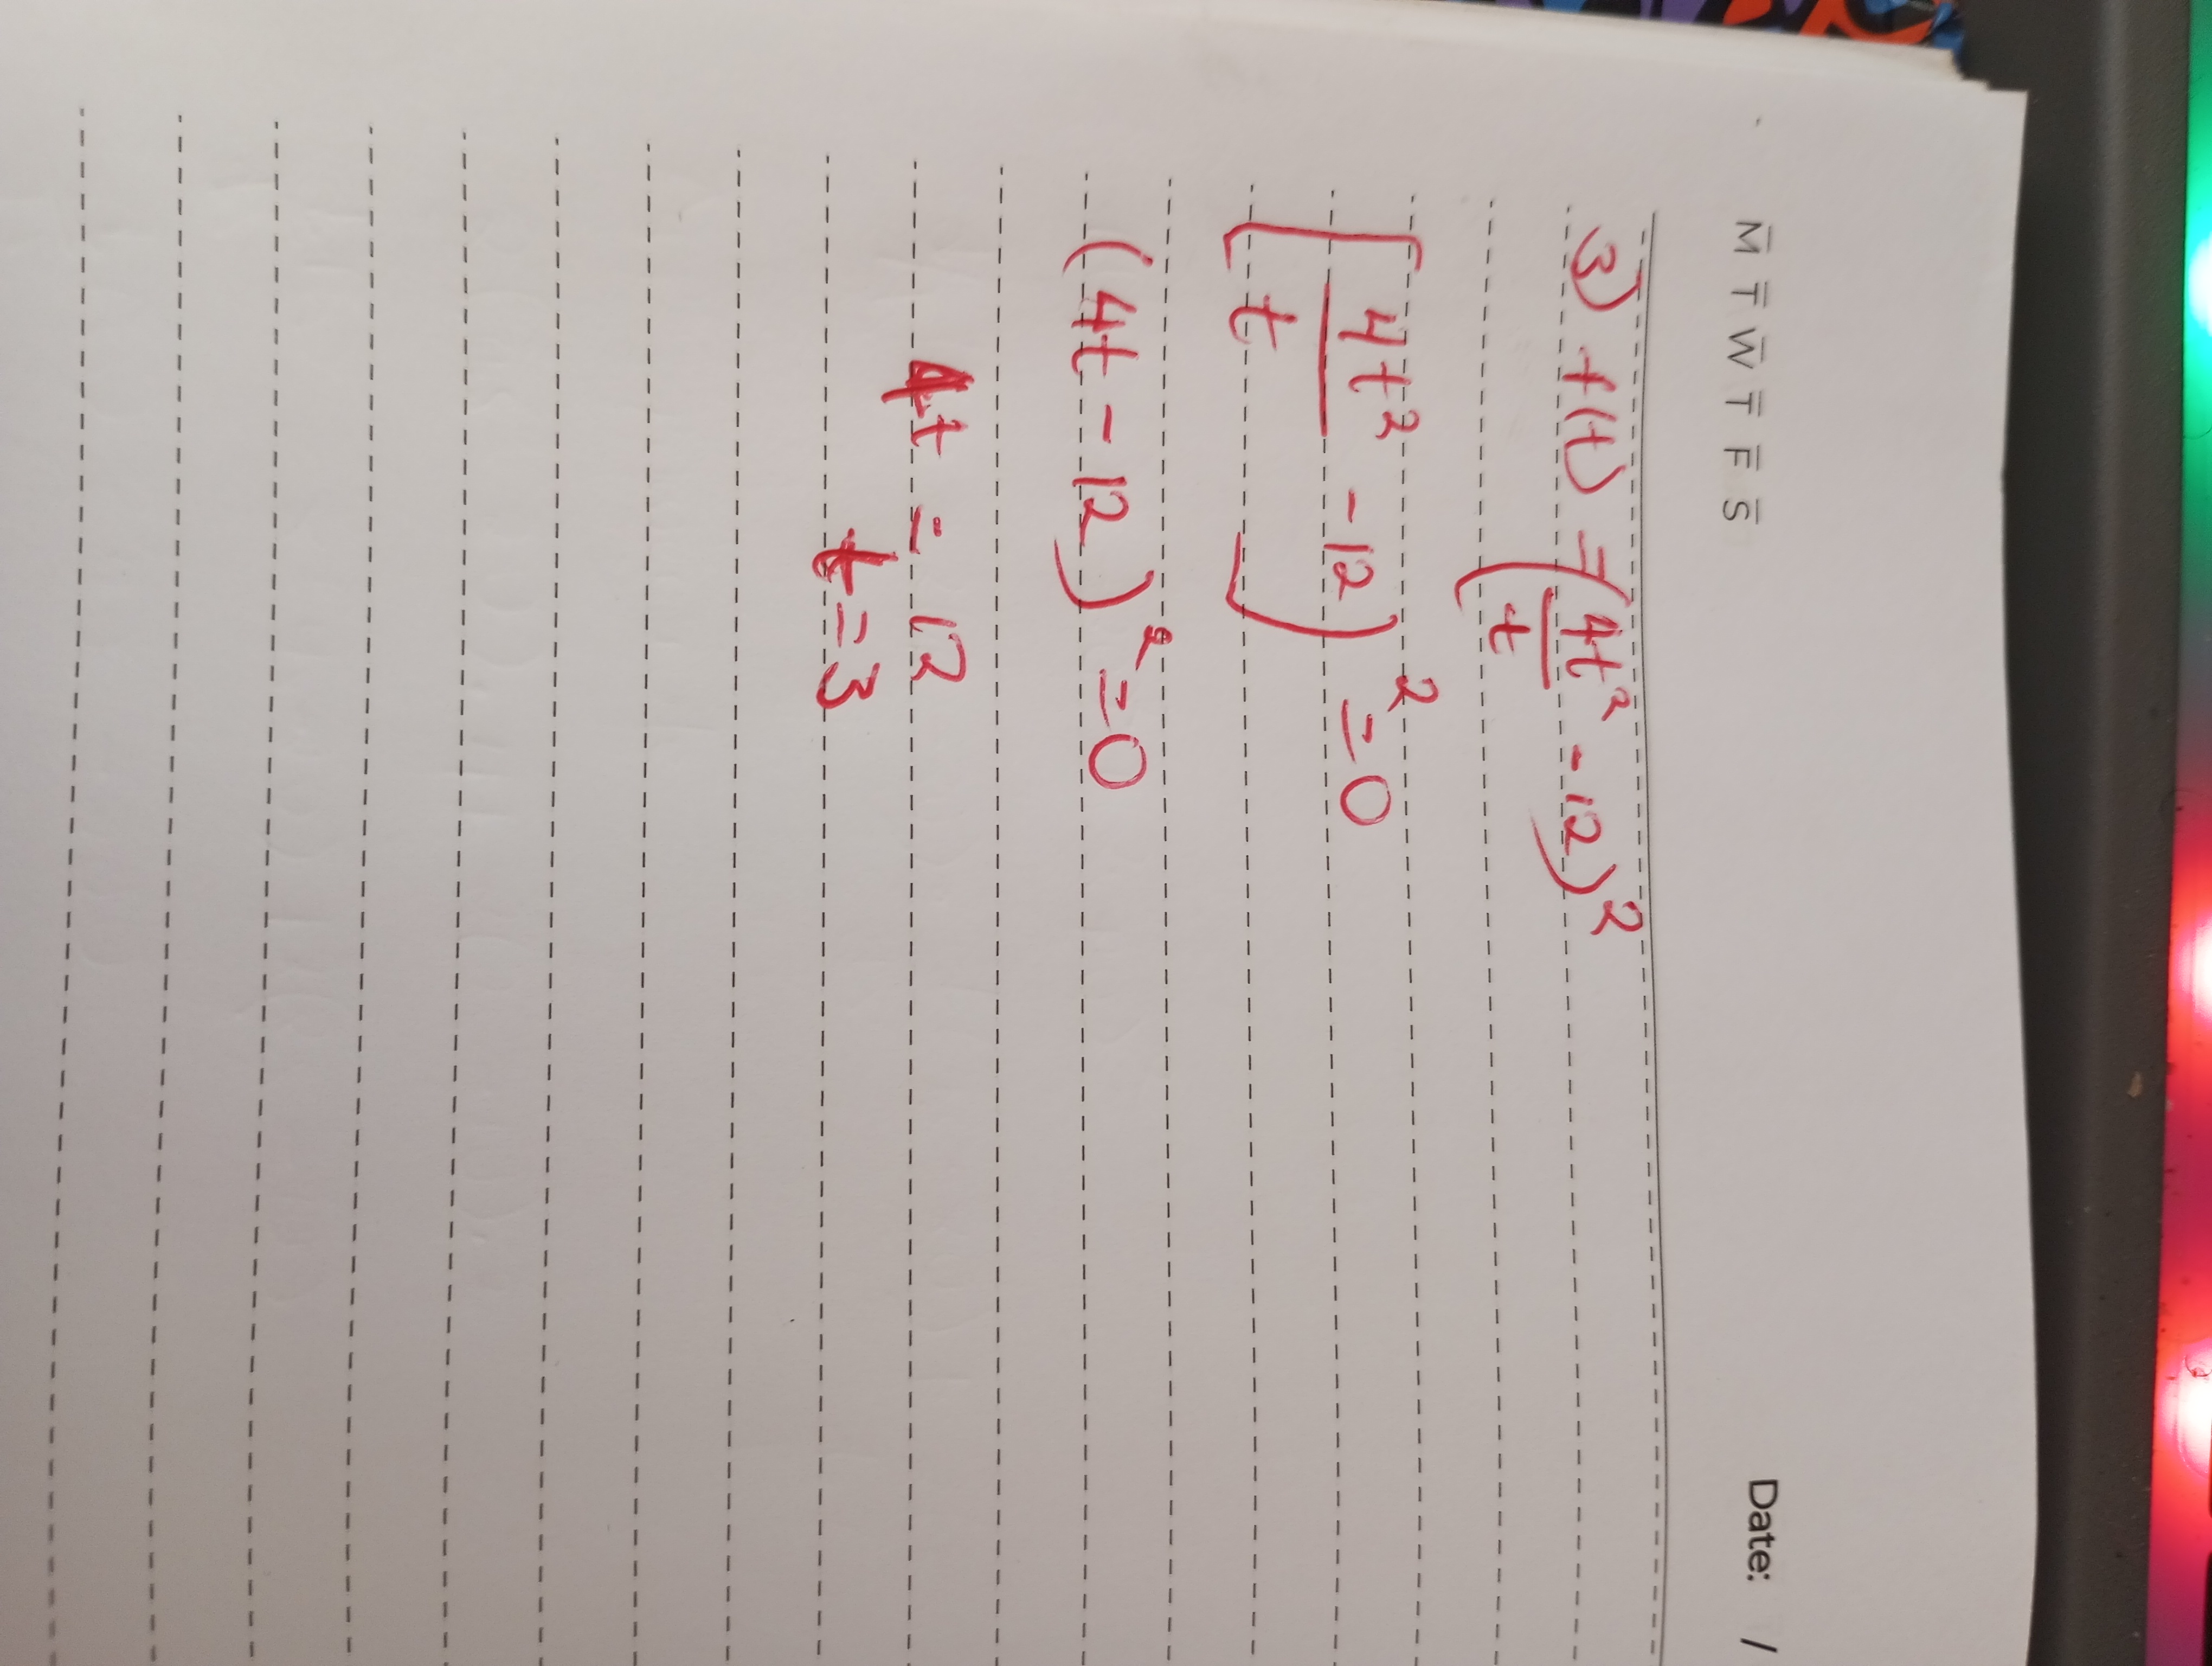 M T W T F S
Date: /
3) f(t) = (4t²/t - 12)²
[4t²/t - 12)² = 0
(4t - 12)² = 0
4t = 12
t = 3